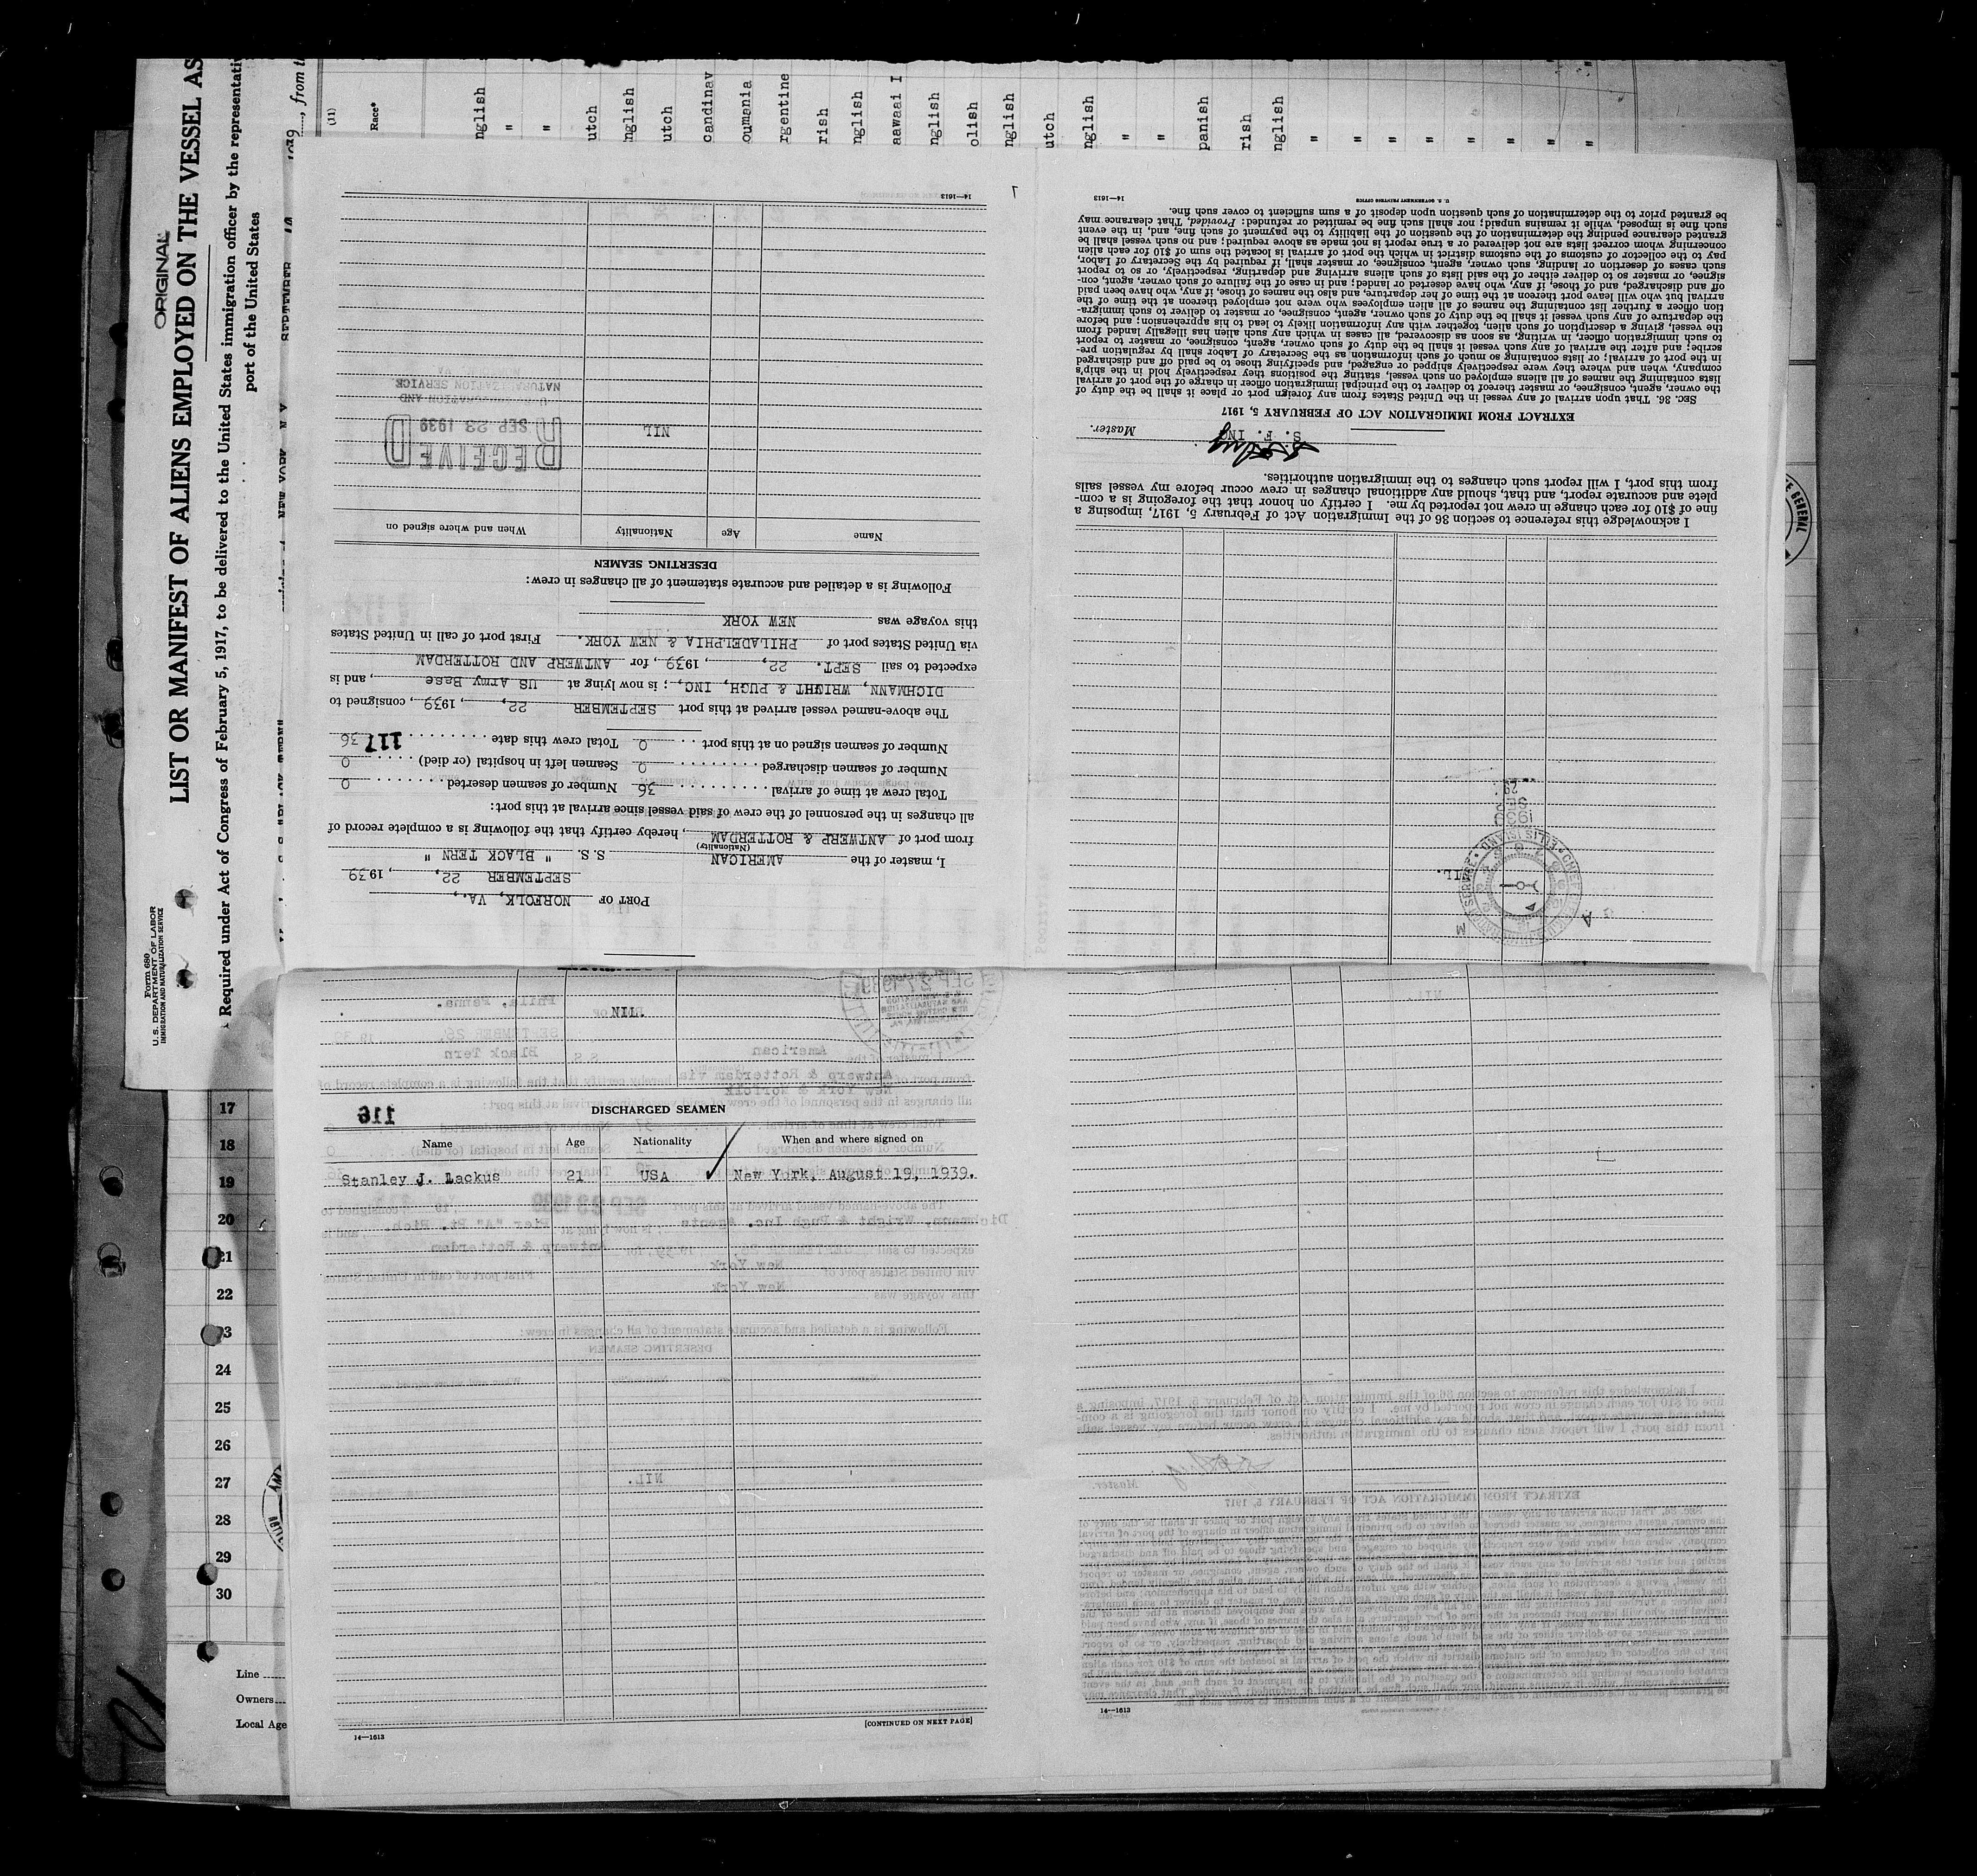 ORIGINAL
LIST OR MANIFEST OF ALIENS EMPLOYED ON THE VESSEL AS
Required under Act of Congress of February 5, 1917, to be delivered to the United States immigration officer by the representativ
port of the United States
Form 680
U. S. DEPARTMENT OF LABOR
IMMIGRATION AND NATURALIZATION SERVICE
(11)
Race*
nglish
"
"
utch
nglish
utch
candinav
oumania
rgentine
rish
nglish
aawaai I
nglish
olish
nglish
utch
nglish
"
"
panish
rish
nglish
"
"
"
"
"
"
"
"
PORT OF NORFOLK, VA.,
SEPTEMBER 22, , 1939
I, master of the AMERICAN S. S. " BLACK TERN "
(Nationality)
from port of ANTWERP & ROTTERDAM, hereby certify that the following is a complete record of
all changes in the personnel of the crew of said vessel since arrival at this port:
Total crew at time of arrival 36 Number of seamen deserted 0
Number of seamen discharged 0 Seamen left in hospital (or died) 0
Number of seamen signed on at this port 0 Total crew this date 36
117
The above-named vessel arrived at this port SEPTEMBER 22, , 1939, consigned to
DICHMANN, WRIGHT & PUGH, INC, ; is now lying at US Army Base, and is
expected to sail SEPT. 22, , 1939, for ANTWERP AND ROTTERDAM
via United States port of PHILADELPHIA & NEW YORK. First port of call in United States
this voyage was NEW YORK
Following is a detailed and accurate statement of all changes in crew:
DESERTING SEAMEN
Name Age Nationality When and where signed on
NIL
RECEIVED
SEP 23 1939
U.S. IMMIGRATION AND
NATURALIZATION SERVICE
14—1613
NIL.
1939
SEP
29
I acknowledge this reference to section 36 of the Immigration Act of February 5, 1917, imposing a
fine of $10 for each change in crew not reported by me. I certify on honor that the foregoing is a com-
plete and accurate report, and that, should any additional changes in crew occur before my vessel sails
from this port, I will report such changes to the immigration authorities.
S. F. ING
Master.
EXTRACT FROM IMMIGRATION ACT OF FEBRUARY 5, 1917
SEC. 36. That upon arrival of any vessel in the United States from any foreign port or place it shall be the duty of
the owner, agent, consignee, or master thereof to deliver to the principal immigration officer in charge of the port of arrival
lists containing the names of all aliens employed on such vessel, stating the positions they respectively hold in the ship's
company, when and where they were respectively shipped or engaged, and specifying those to be paid off and discharged
in the port of arrival; or lists containing so much of such information as the Secretary of Labor shall by regulation pre-
scribe; and after the arrival of any such vessel it shall be the duty of such owner, agent, consignee, or master to report
to such immigration officer, in writing, as soon as discovered, all cases in which any such alien has illegally landed from
the vessel, giving a description of such alien, together with any information likely to lead to his apprehension; and before
the departure of any such vessel it shall be the duty of such owner, agent, consignee, or master to deliver to such immigra-
tion officer a further list containing the names of all alien employees who were not employed thereon at the time of the
arrival but who will leave port thereon at the time of her departure, and also the names of those, if any, who have been paid
off and discharged, and of those, if any, who have deserted or landed; and in case of the failure of such owner, agent, con-
signee, or master so to deliver either of the said lists of such aliens arriving and departing, respectively, or so to report
such cases of desertion or landing, such owner, agent, consignee, or master shall, if required by the Secretary of Labor,
pay to the collector of customs of the customs district in which the port of arrival is located the sum of $10 for each alien
concerning whom correct lists are not delivered or a true report is not made as above required; and no such vessel shall be
granted clearance pending the determination of the question of the liability to the payment of such fine, and, in the event
such fine is imposed, while it remains unpaid; nor shall such fine be remitted or refunded: Provided, That clearance may
be granted prior to the determination of such question upon deposit of a sum sufficient to cover such fine.
U. S. GOVERNMENT PRINTING OFFICE 14—1613
NIL.
116
DISCHARGED SEAMEN
Name Age Nationality When and where signed on
Stanley J. Lackus 21 USA New York, August 19, 1939.
NIL.
[CONTINUED ON NEXT PAGE]
14—1613
14—1613
17
18
19
20
21
22
23
24
25
26
27
28
29
30
Line
Owners
Local Age